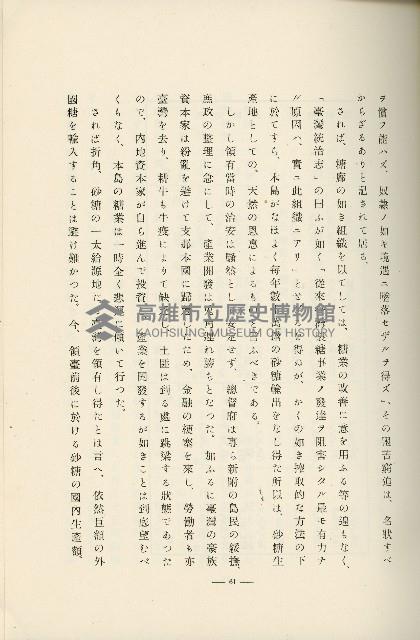 ヲ償フ能ハズ、奴隷ノ如キ境遇ニ墜落セザルヲ得ズ」その困苦窮迫は、名狀すべ
からざるありと記されて居る。
されば、糖廍の如き組織を以てしては、糖業の改善に意を用ふる等の遑もなく、
「臺灣統治志」の曰ふが如く「從來臺灣製糖事業ノ發達ヲ阻害シタル最モ有力ナ
ル原因ハ、實ニ此組織ニアリ」とせざるを得ぬが、かくの如き搾取的な方法の下
に於てすら、本島がなほよく毎年數十萬擔の砂糖輸出をなし得た所以は、砂糖生
產地としての、天然の恩惠によるものと言ふべきである。
しかし領有當時の治安は騷然として安定せず、總督府は專ら新附の島民の綏撫、
庶政の整理に急にして、產業開發は後れ勝ちとなつた。加ふるに臺灣の豪族
資本家は紛亂を避けて支那本國に歸來したため、金融の梗塞を來し、勞働者も亦
臺灣を去り、耕牛も牛疫によりて缺乏し、土匪は到る處に跳梁する狀態であつた
ので、內地資本家が自ら進んで投資し、產業を開發するが如きことは到底望むべ
くもなく、本島の糖業は一時全く悲運に傾いて行つた。
されば折角、砂糖の一大給源地たる臺灣を領有し得たとは言へ、依然巨額の外
國糖を輸入することは避け難かつた。今、領臺前後に於ける砂糖の國內生產額、
— 61 —
高雄市立歷史博物館
KAOHSIUNG MUSEUM OF HISTORY